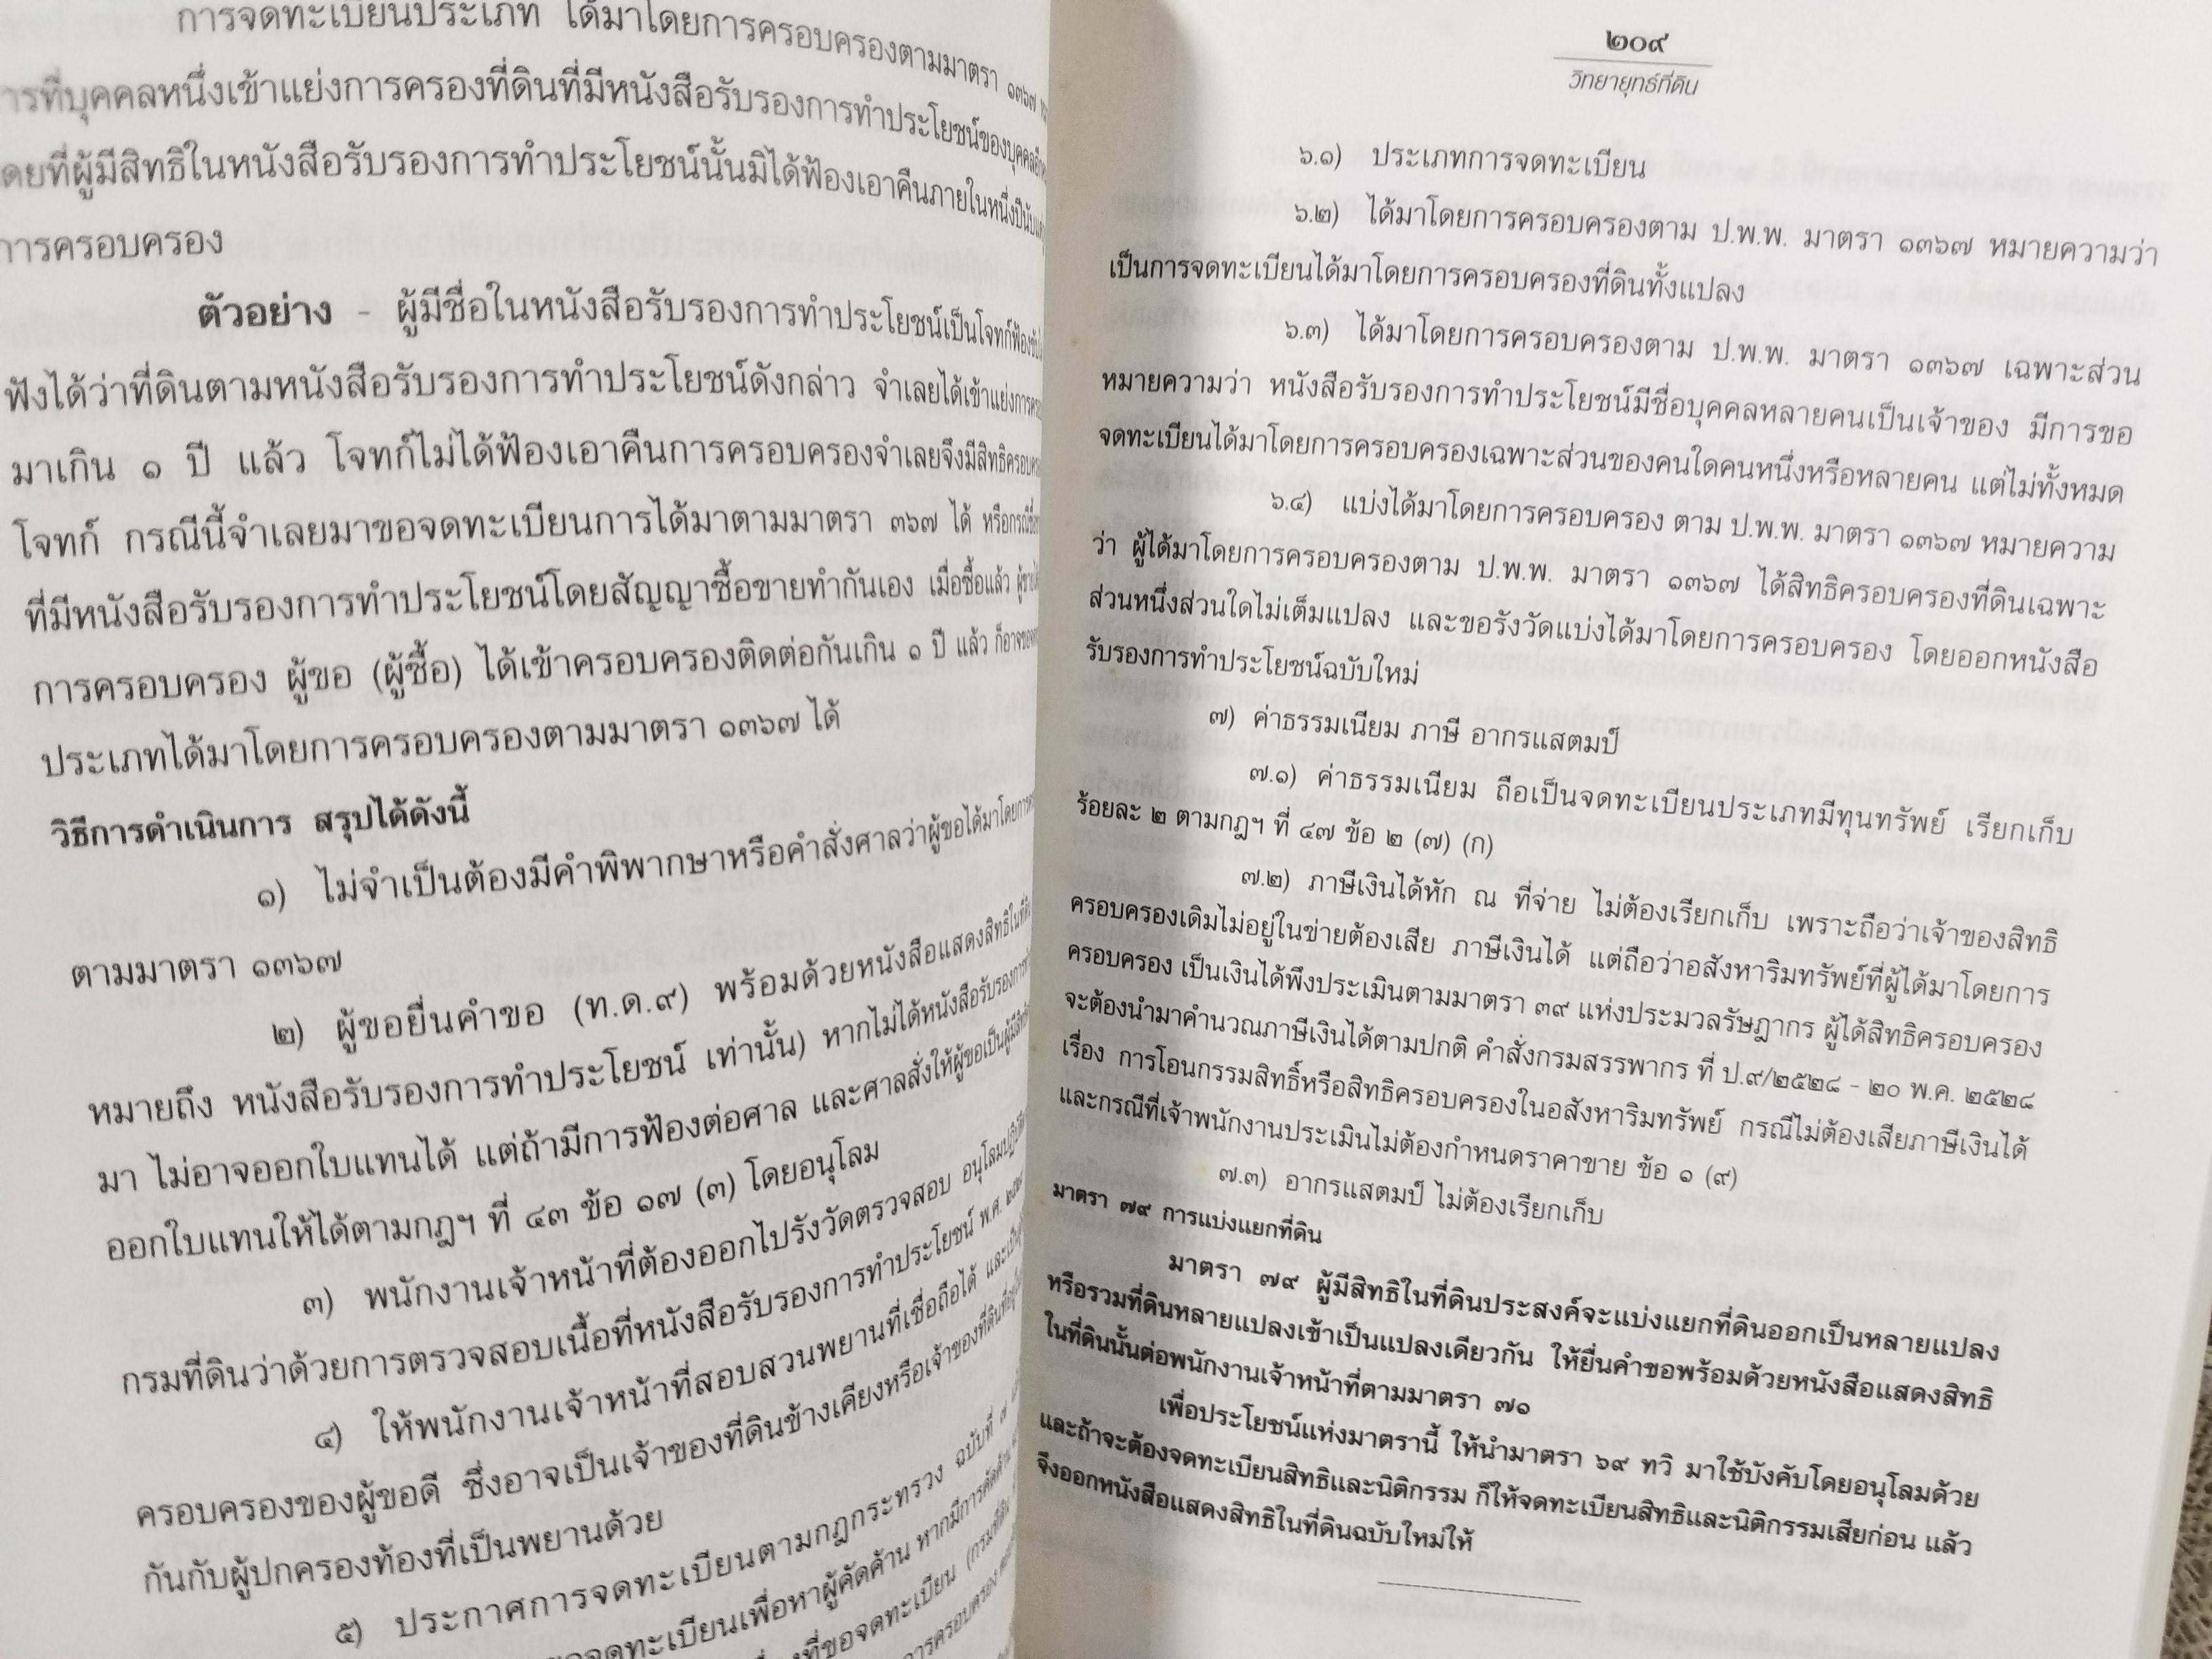 การจดทะเบียนประเภท ได้มาโดยการครอบครองตามมาตรา ๑๓๖๗
ที่บุคคลหนึ่งเข้าแย่งการครองที่ดินที่มีหนังสือรับรองการทำประโยชน์ของบุคคล
ที่ผู้มีสิทธิในหนังสือรับรองการทำประโยชน์นั้นมิได้ฟ้องเอาคืนภายในหนึ่งปีนับแต่
การครอบครอง
ตัวอย่าง - ผู้มีชื่อในหนังสือรับรองการทำประโยชน์เป็นโจทก์ฟ้อง
ฟังได้ว่าที่ดินตามหนังสือรับรองการทำประโยชน์ดังกล่าว จำเลยได้เข้าแย่งการ
มาเกิน ๑ ปี แล้ว โจทก์ไม่ได้ฟ้องเอาคืนการครอบครองจำเลยจึงมีสิทธิ
โจทก์ กรณีนี้จำเลยมาขอจดทะเบียนการได้มาตามมาตรา ๓๖๗ ได้ หรือกรณี
ที่มีหนังสือรับรองการทำประโยชน์โดยสัญญาซื้อขายทำกันเอง เมื่อซื้อแล้ว
การครอบครอง ผู้ขอ (ผู้ซื้อ) ได้เข้าครอบครองติดต่อกันเกิน ๑ ปี แล้ว
ประเภทได้มาโดยการครอบครองตามมาตรา ๑๓๖๗ ได้
วิธีการดำเนินการ สรุปได้ดังนี้
๑) ไม่จำเป็นต้องมีคำพิพากษาหรือคำสั่งศาลว่าผู้ขอได้มาโดยการ
ตามมาตรา ๑๓๖๗
๒) ผู้ขอยื่นคำขอ (ท.ด.๙) พร้อมด้วยหนังสือแสดงสิทธิในที่ดิน
หมายถึง หนังสือรับรองการทำประโยชน์ เท่านั้น) หากไม่ได้หนังสือรับรองการ
มา ไม่อาจออกใบแทนได้ แต่ถ้ามีการฟ้องต่อศาล และศาลสั่งให้ผู้ขอเป็นผู้มีสิทธิ
ออกใบแทนให้ได้ตามกฎฯ ที่ ๔๓ ข้อ ๑๗ (๓) โดยอนุโลม
๓) พนักงานเจ้าหน้าที่ต้องออกไปรังวัดตรวจสอบ
กรมที่ดินว่าด้วยการตรวจสอบเนื้อที่หนังสือรับรองการทำประโยชน์ พ.ศ.
๔) ให้พนักงานเจ้าหน้าที่สอบสวนพยานที่เชื่อถือได้
ครอบครองของผู้ขอดี ซึ่งอาจเป็นเจ้าของที่ดินข้างเคียงหรือเจ้าของที่ดิน
กันกับผู้ปกครองท้องที่เป็นพยานด้วย
๕) ประกาศการจดทะเบียนตามกฎกระทรวง ฉบับที่ ๗
จดทะเบียนเพื่อหาผู้คัดค้าน หากมีการคัดค้าน
ที่ขอจดทะเบียน (กรมที่ดิน
การครอบครอง
๒๐๙
วิทยายุทธ์ที่ดิน
๖.๑) ประเภทการจดทะเบียน
๖.๒) ได้มาโดยการครอบครองตาม ป.พ.พ. มาตรา ๑๓๖๗ หมายความว่า
เป็นการจดทะเบียนได้มาโดยการครอบครองที่ดินทั้งแปลง
๖.๓) ได้มาโดยการครอบครองตาม ป.พ.พ. มาตรา ๑๓๖๗ เฉพาะส่วน
หมายความว่า หนังสือรับรองการทำประโยชน์มีชื่อบุคคลหลายคนเป็นเจ้าของ มีการขอ
จดทะเบียนได้มาโดยการครอบครองเฉพาะส่วนของคนใดคนหนึ่งหรือหลายคน แต่ไม่ทั้งหมด
๖.๔) แบ่งได้มาโดยการครอบครอง ตาม ป.พ.พ. มาตรา ๑๓๖๗ หมายความ
ว่า ผู้ได้มาโดยการครอบครองตาม ป.พ.พ. มาตรา ๑๓๖๗ ได้สิทธิครอบครองที่ดินเฉพาะ
ส่วนหนึ่งส่วนใดไม่เต็มแปลง และขอรังวัดแบ่งได้มาโดยการครอบครอง โดยออกหนังสือ
รับรองการทำประโยชน์ฉบับใหม่
๗) ค่าธรรมเนียม ภาษี อากรแสตมป์
๗.๑) ค่าธรรมเนียม ถือเป็นจดทะเบียนประเภทมีทุนทรัพย์ เรียกเก็บ
ร้อยละ ๒ ตามกฎฯ ที่ ๔๗ ข้อ ๒ (๗) (ก)
๗.๒) ภาษีเงินได้หัก ณ ที่จ่าย ไม่ต้องเรียกเก็บ เพราะถือว่าเจ้าของสิทธิ
ครอบครองเดิมไม่อยู่ในข่ายต้องเสีย ภาษีเงินได้ แต่ถือว่าอสังหาริมทรัพย์ที่ผู้ได้มาโดยการ
ครอบครอง เป็นเงินได้พึงประเมินตามมาตรา ๓๙ แห่งประมวลรัษฎากร ผู้ได้สิทธิครอบครอง
จะต้องนำมาคำนวณภาษีเงินได้ตามปกติ คำสั่งกรมสรรพากร ที่ ป.๙/๒๕๒๘ - ๒๐ พ.ค. ๒๕๒๘
เรื่อง การโอนกรรมสิทธิ์หรือสิทธิครอบครองในอสังหาริมทรัพย์ กรณีไม่ต้องเสียภาษีเงินได้
และกรณีที่เจ้าพนักงานประเมินไม่ต้องกำหนดราคาขาย ข้อ ๑ (๙)
๗.๓) อากรแสตมป์ ไม่ต้องเรียกเก็บ
มาตรา ๗๙ การแบ่งแยกที่ดิน
มาตรา ๗๙ ผู้มีสิทธิในที่ดินประสงค์จะแบ่งแยกที่ดินออกเป็นหลายแปลง
หรือรวมที่ดินหลายแปลงเข้าเป็นแปลงเดียวกัน ให้ยื่นคำขอพร้อมด้วยหนังสือแสดงสิทธิ
ในที่ดินนั้นต่อพนักงานเจ้าหน้าที่ตามมาตรา ๗๑
เพื่อประโยชน์แห่งมาตรานี้ ให้นำมาตรา ๖๙ ทวิ มาใช้บังคับโดยอนุโลมด้วย
และถ้าจะต้องจดทะเบียนสิทธิและนิติกรรม ก็ให้จดทะเบียนสิทธิและนิติกรรมเสียก่อน แล้ว
จึงออกหนังสือแสดงสิทธิในที่ดินฉบับใหม่ให้